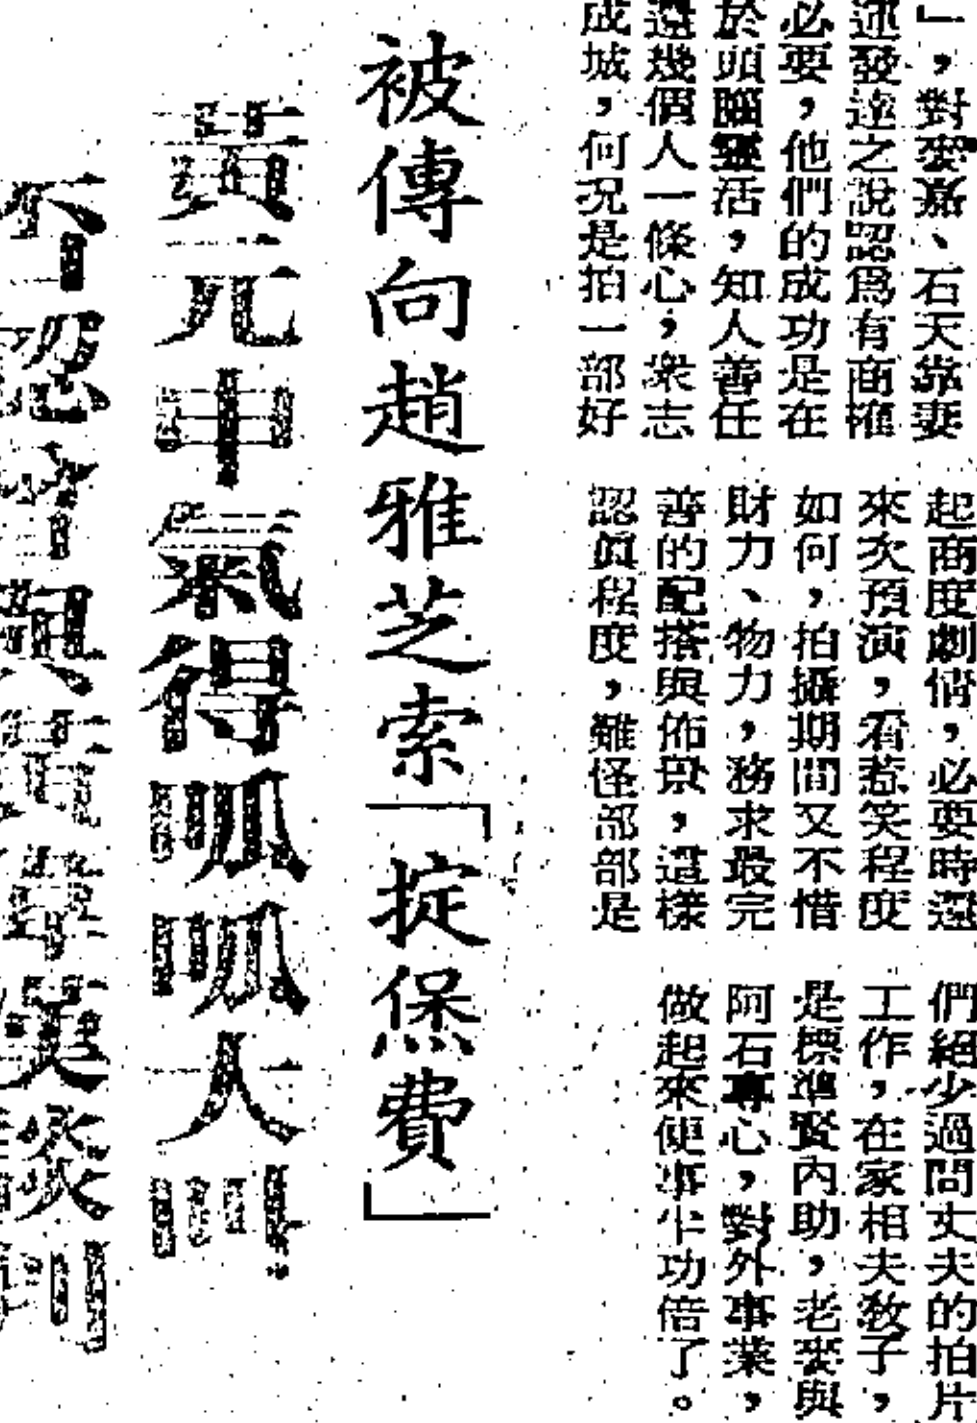 」，對麥嘉、石天靠妻
運發達之說認爲有商榷
必要，他們的成功是在
於頭腦靈活，知人善任
還幾個人一條心，衆志
成城，何況是拍一部好
起商度劇情，必要時還
來次預演，看惹笑程度
如何，拍攝期間又不惜
財力、物力，務求最完
善的配搭與佈景，這樣
認眞程度，難怪部部是
們絕少過問丈夫的拍片
工作，在家相夫教子，
是標準賢內助，老麥與
阿石專心，對外事業，
做起來便事半功倍了。
被傳向趙雅芝索「掟煲費」
黃元申氣得呱呱大叫
不認